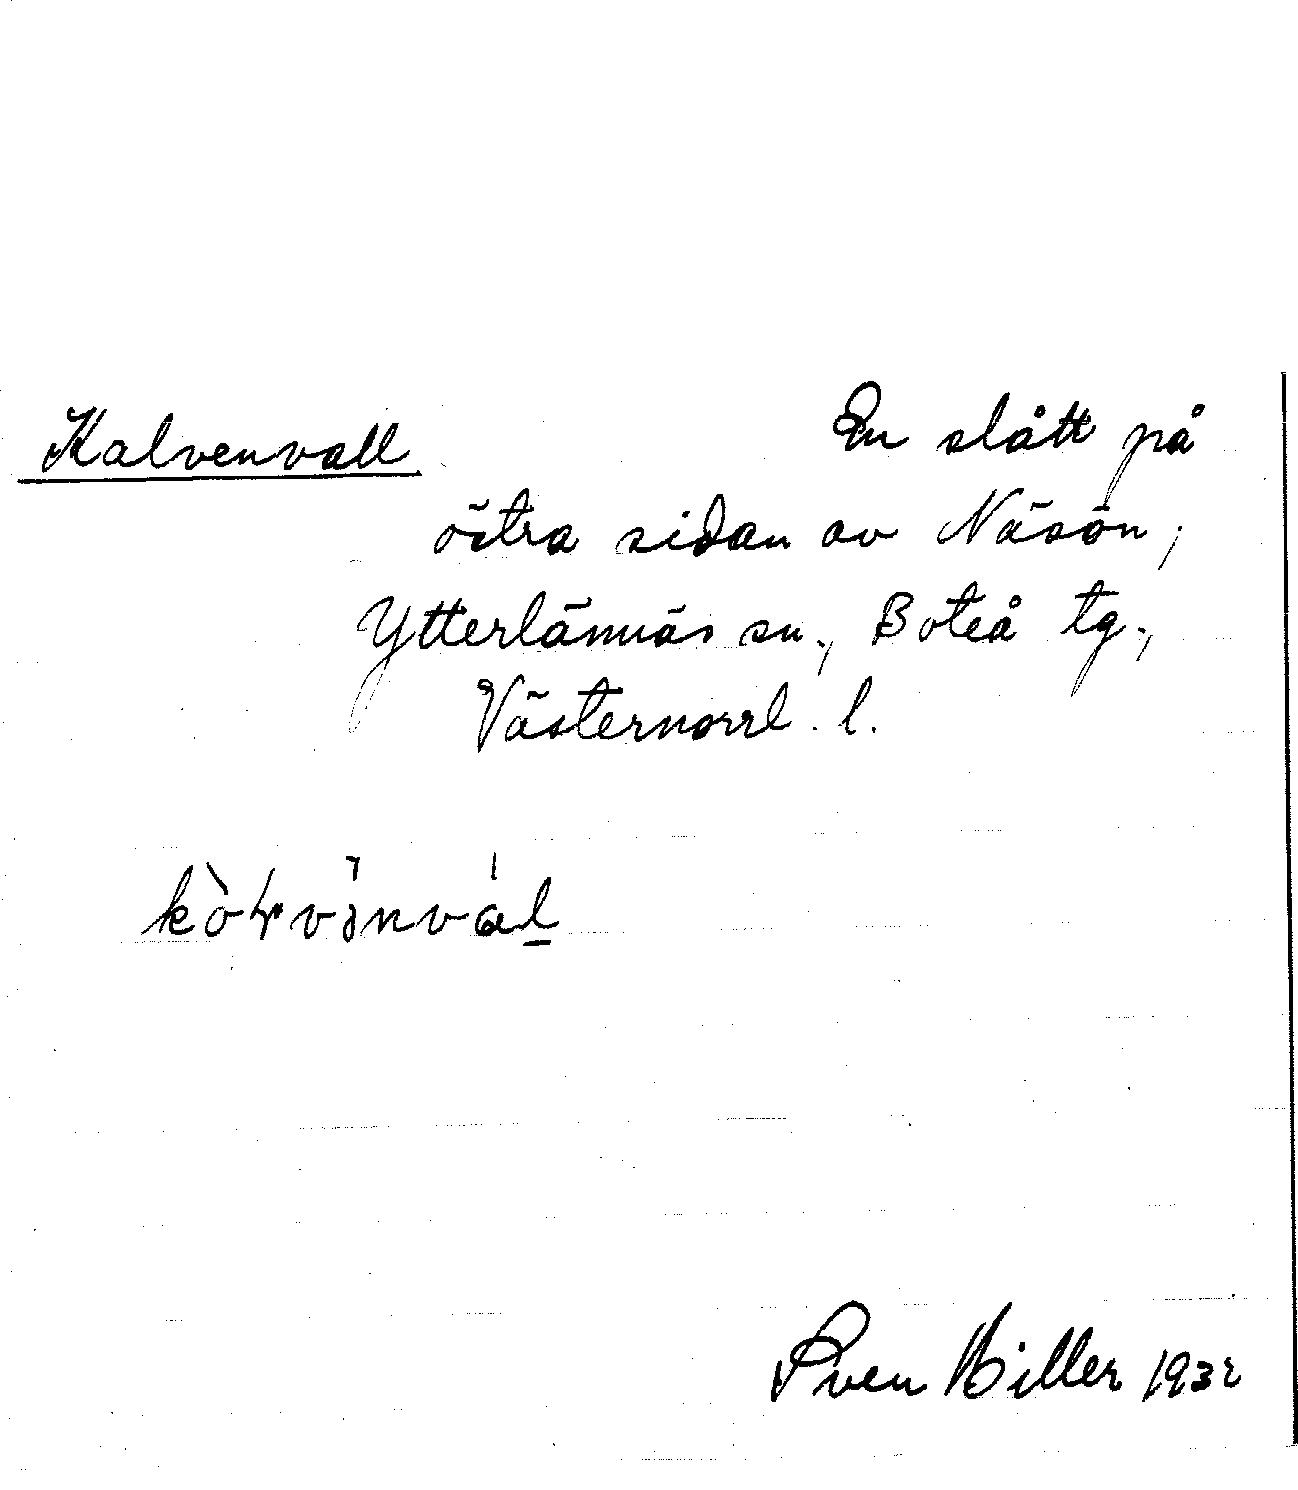 Kalvenvall En slått på
östra sidan av Näsön,
Ytterlännäs sn., Boteå tg.,
Västernorrl. l.
Sven Hiller 1932